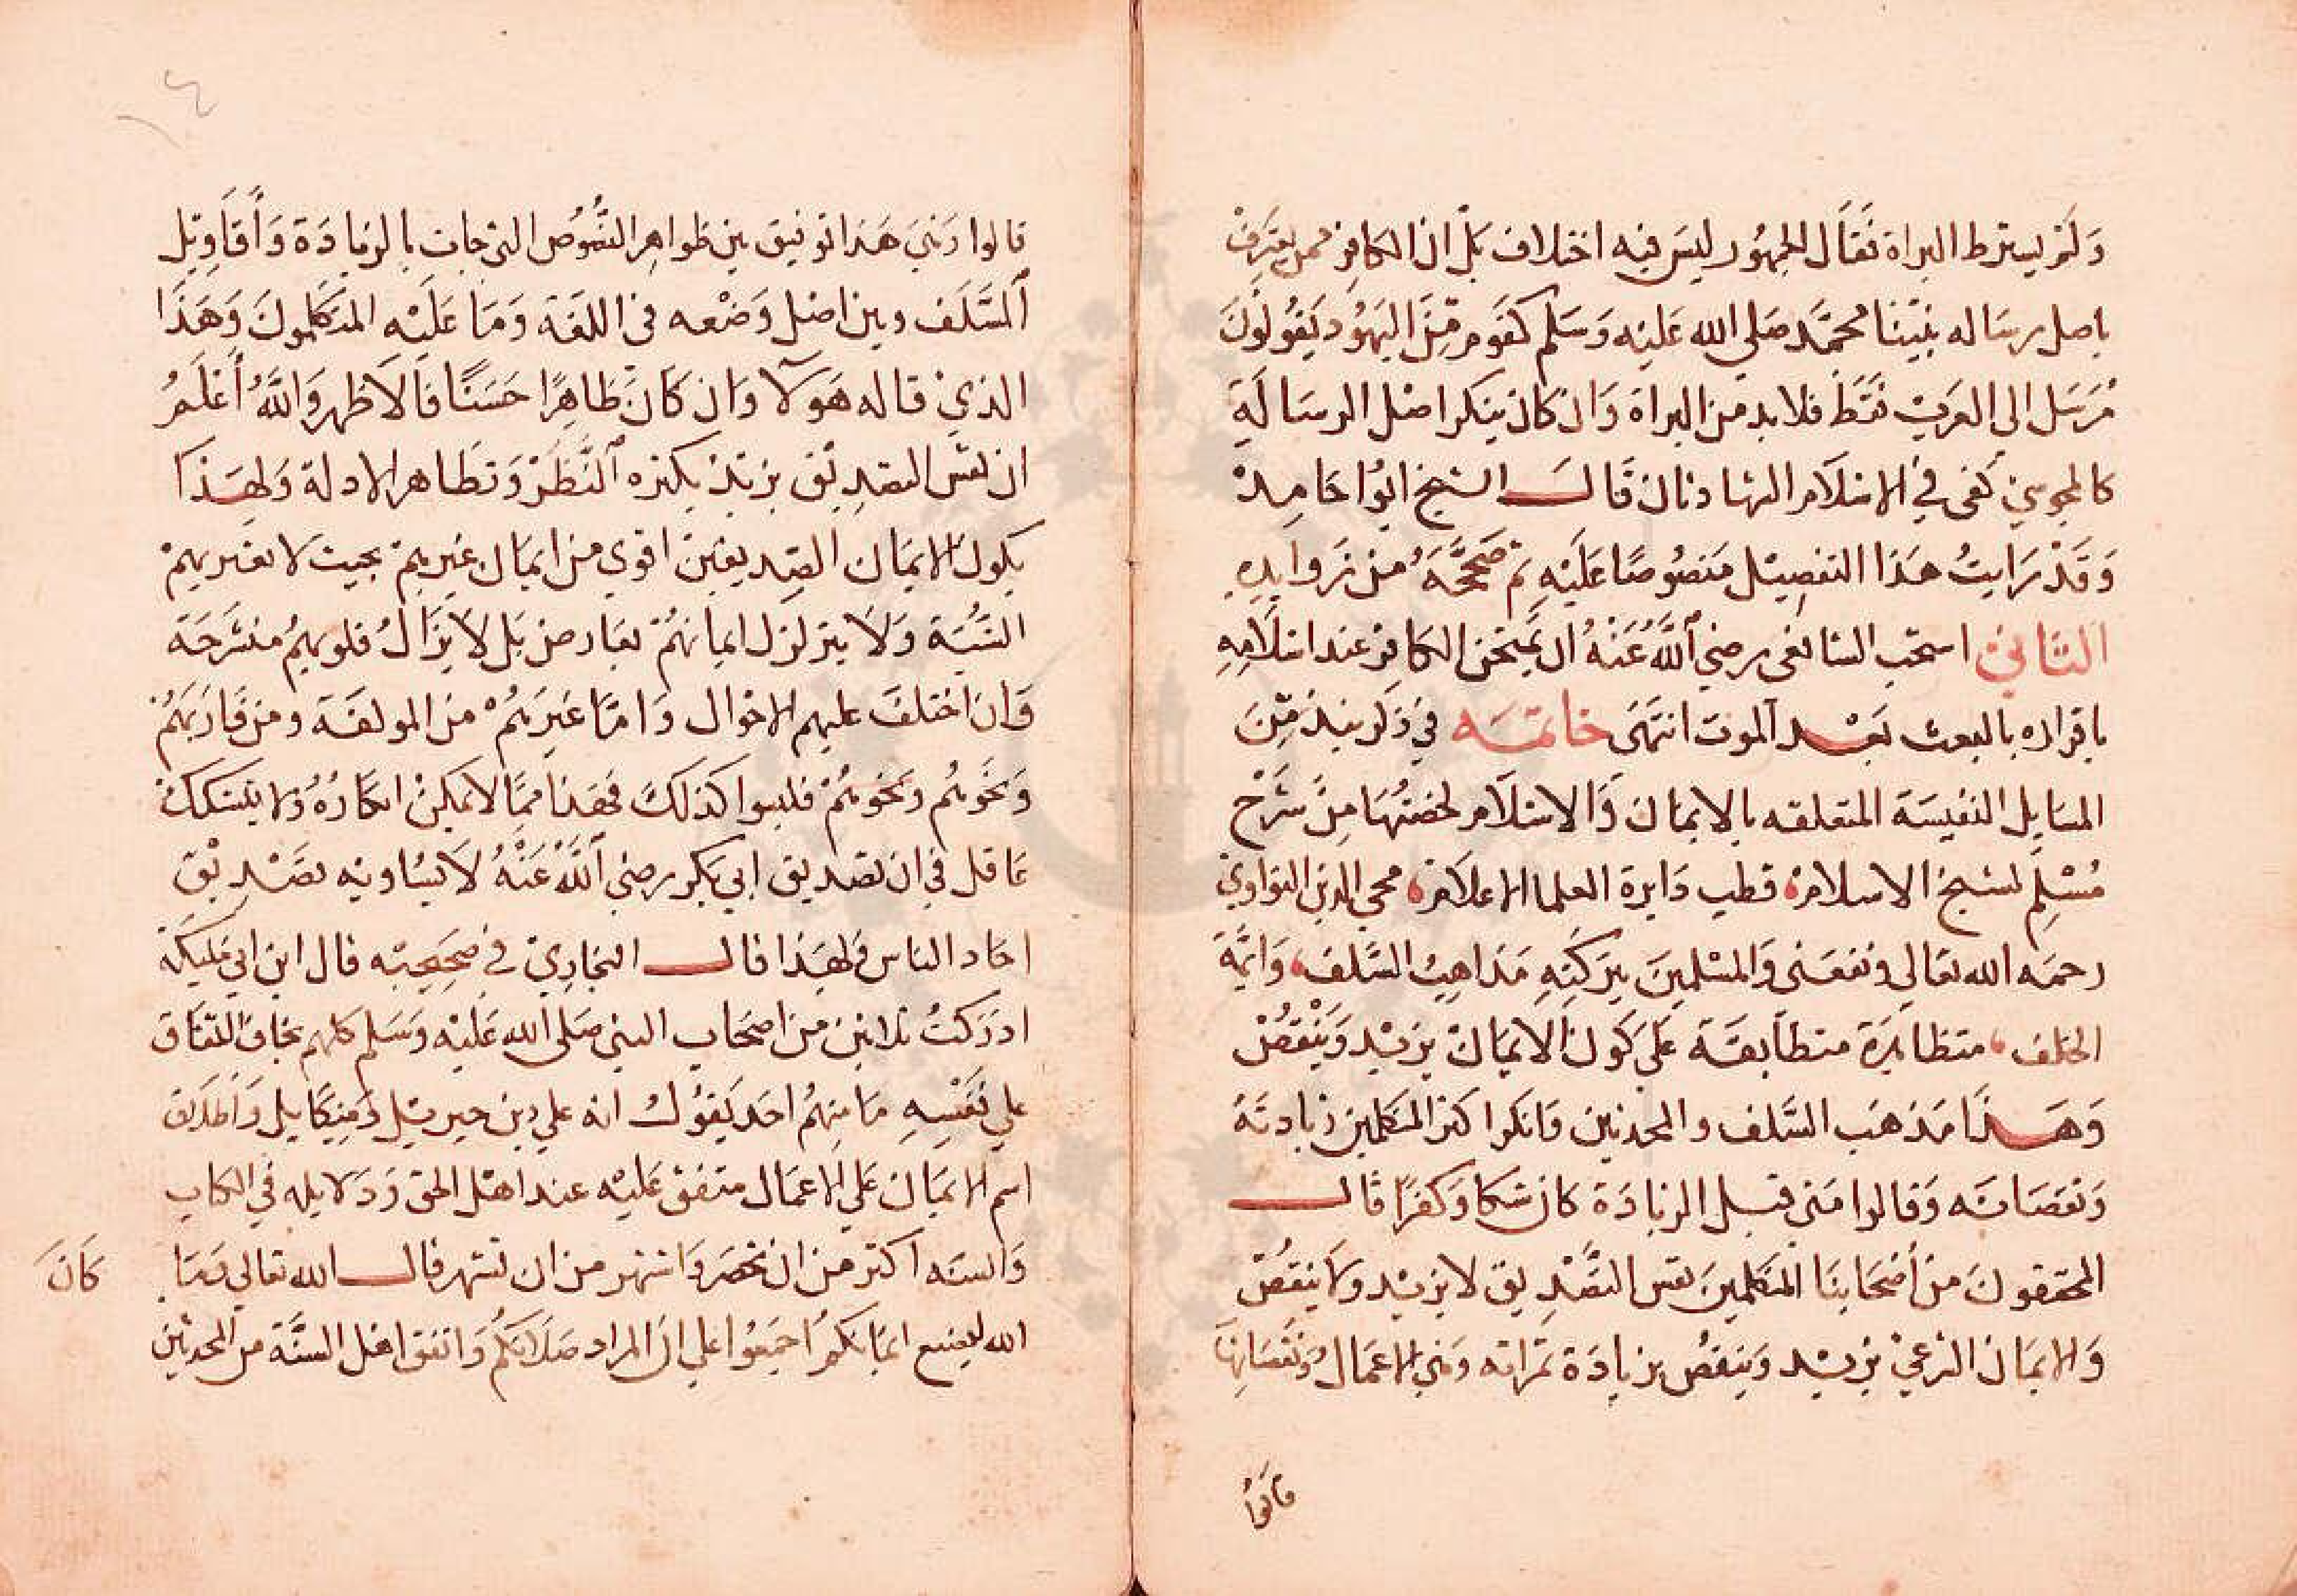 وَلَم يسترط البراة فَقَال الجمهُور ليسَ فيه اختلاف بَلْ ان الكافِر ممن يعترِفْ
باصل رسَاله نبيّنا محمّد صَلي الله عَليْه وَسَلم كقَوم مِّنَ اليَهُود يَقُولُونَ
مُرسَل الى العَرَبْ فقَط فلابد مِن البراة وَان كانَ ينكر اصْل الرسَالَةِ
كالمجوسيْ كفى في الاسْلَام الشهادتان قَال الشيخ ابُوا حَامِدْ
وَقَدْ رَايتُ هَذا التفصِيْل مَنصُوصًا عَلَيْهِ ثم صَححَّهُ مِن زَوايدِهِ
الثاني استحَب الشافعى رضي اللَّهُ عَنْهُ ان يَمتحَن الكافِر عند اسْلَامِهِ
باقراره بالبعث بَعْد الموت انتهَى خاتمَه في ذكر نبذ مِّنَ
المسَايل النفيسَة المتعلقه بالايمان وَالاسْلَام لخصْتُهَا مِنْ شَرْح
مُسْلِم لشيخ الاسلام قطب دَايرة العلما الاعلَام محيى الدين النواوي
رحمَه الله تعَالى ونفعَنى وَالمسْلمينَ ببَركتِهِ مَذاهِبُ السَّلف وَائِمَّة
الخلف متظَاهِرَة متطَابقَة عَلَي كَون الايمَانْ يزيْد وَيَنْقصُ
وَهَذَا مَذهَب السَّلف والمحدثين وَانكر اكثر المتكلمين زيادتَهُ
وَنقصَانَه وَقالوا مَتى قبل الزيادَة كان شكا وَكفرًا قال
المحققونَ مِن أصْحَابنَا المتكلمِينَ نفس التصْدِيق لا يزيْد وَلا ينقصُ
وَالايمَان الشرعيْ يزيْد وَينقصُ بزيادَة ثمراته وَهِي الاعمَالُ وَنقصَانِهَا
قالوُا
قالوا وَفي هَذا توفيق بين ظواهِر النصُوُص التي جات بالزيادَة وَأقاَوِيْل
السَّلَف وبين اصْل وَضْعه في اللغَة وَمَا عَلَيْه المتكلموُنَ وَهَذَا
الذي قاله هَولآ وَان كَانَ ظَاهِرًا حَسَنًا فَالاَظهر وَاللَّهُ أعْلَمُ
ان نفس التصْدِيْق يزيْد بكثرة النَّظَرْ وَتظَاهر الادلة وَلهَذَا
يكون الايمَان الصِدّيقينَ اقوي من ايمَان غيرهِم بحيث لا تعتريهمْ
الشبُهَة وَلَا يتزلزل ايمانهُمْ بعَارض بَل لَا يزَالُ قلوبهمُ منشَرَحَة
وَان اختلفَ عليهم الاحْوال وَامّا غيْرهمُْ من المولفَة ومن قَارَبَهمُْ
وَنحَوهُم وَنحَوهُمْ فليسوا كذلكَ فهذا ممَّا لا يمكِنْ انكَارُهُ وَلا يتشكك
عاقل في ان تصديق ابي بَكر رضي اللَّهُ عَنْهُ لَا يسُاويْه تصْدِيْق
احَاد الناس وَلهَذا قال البخاريْ في صَحِيْحِه قال ابن ابي مُليكَة
ادرَكتُ ثلاثين من اصحَاب النبي صَلي الله عَليْه وَسَلم كلهم يخاف النفَاق
علي نَفْسِهِ مَا منهُم احَد يَقوُلُ انه علي دين جبريْل وَمِيكَايل وَاطلَاق
اسم الايمَان عَلي الاعمَال متفق عَليْه عند اهْل الحق وَدَلايله في الكتاب
وَالسنه اكثر من ان تحْصَر وَاشهر من ان تشهر قال الله تعَالى وَمَا
كَانَ
الله ليضيع ايمَانكمُْ اجمَعُوا علي انَ المراد صَلَاتكمُْ وَاتفق اهْل السنَّة من المحدثين